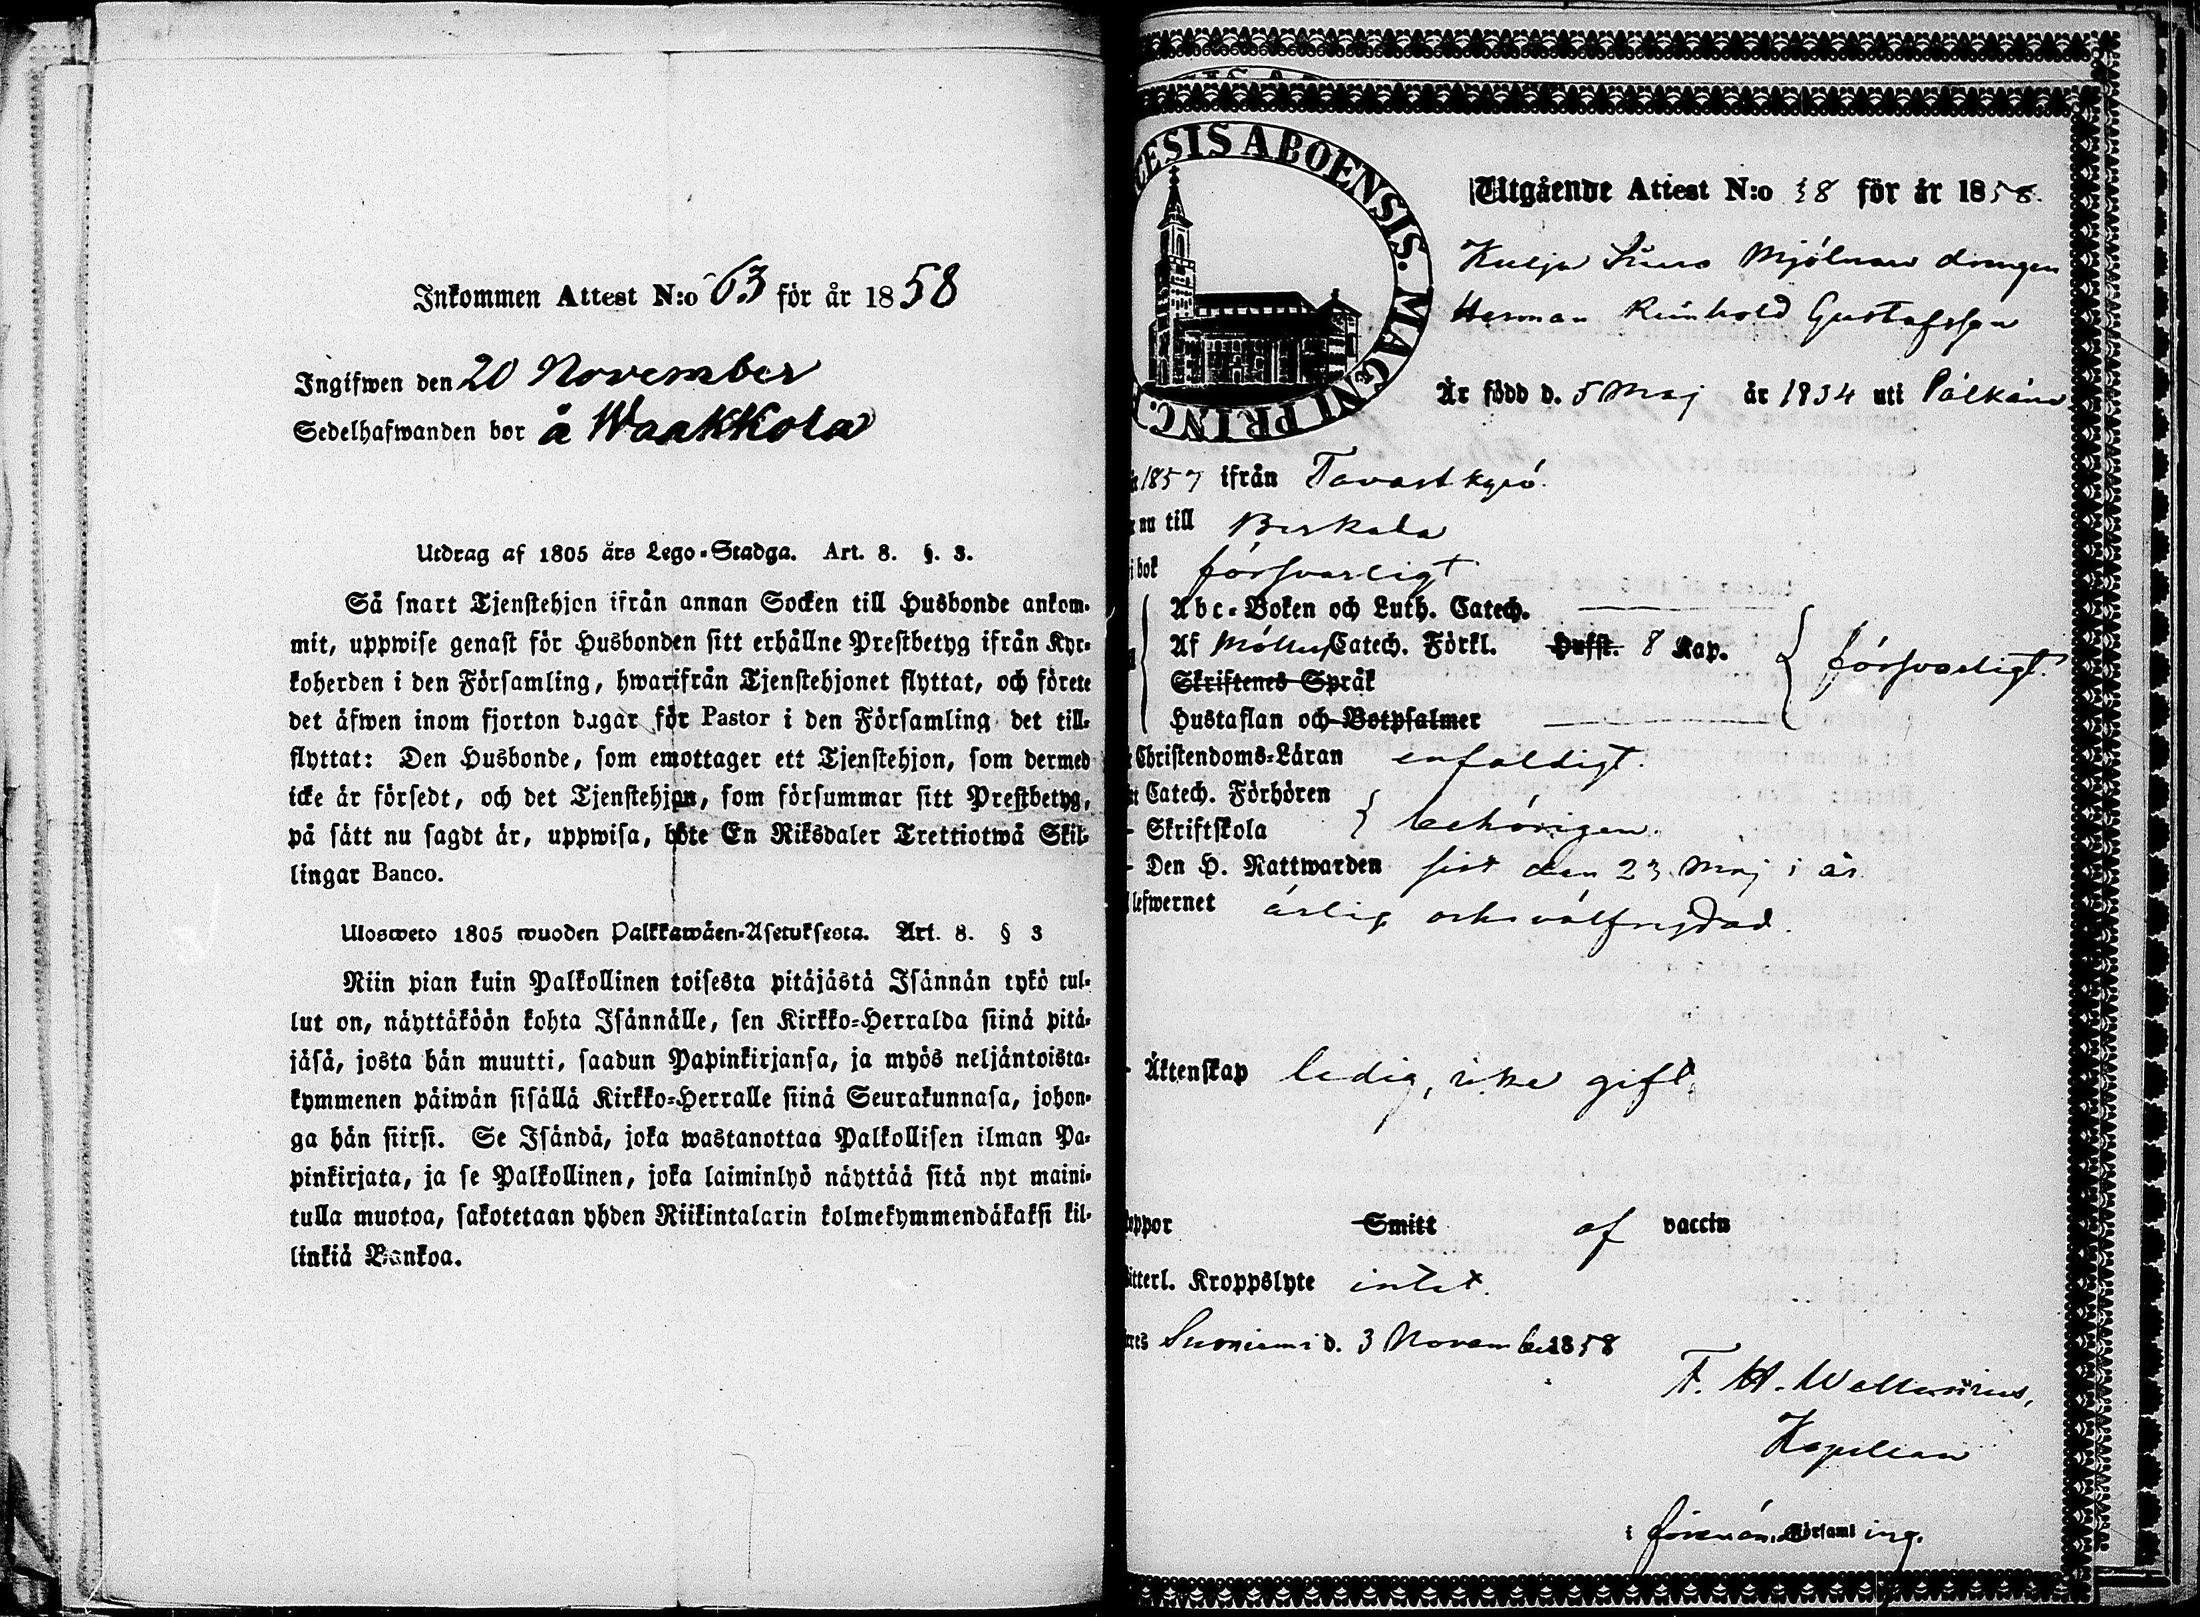 Inkommen Attest N:o 63 för år 1858
Ingifwen den 20 November
Sedelhafwanden bor å Waakkola
Utdrag af 1805 års Lego-Stadga. Art. 8. §. 3.
Så snart Tjenstehjon ifrån annan Socken till Husbonde ankom-
mit, uppwise genast för Husbonden sitt erhållne Prestbetyg ifrån Kyr-
koherden i den Församling, hwarifrån Tjenstehjonet flyttat, och förete
det äfwen inom fjorton dagar för Pastor i den Församling det till-
flyttat: Den Husbonde, som emottager ett Tjenstehjon, som dermed
icke är försedt, och det Tjenstehjon, som försummar sitt Prestbetyg,
på sätt nu sagdt är, uppwisa, böte En Riksdaler Trettiotwå Skil-
lingar Banco.
Ulosweto 1805 wuoden Palkkawäen-Asetuksesta. Art. 8. § 3
Niin pian kuin Palkollinen toisesta pitäjästä Isännän tykö tul-
lut on, näyttäköön kohta Isännälle, sen Kirkko-Herralda siinä pitä-
jäsä, josta hän muutti, saadun Papinkirjansa, ja myös neljäntoista-
kymmenen päiwän sisällä Kirkko-Herralle siinä Seurakunnasa, johon-
ga hän siirsi. Se Isändä, joka wastanottaa Palkollisen ilman Pa-
pinkirjata, ja se Palkollinen, joka laiminlyö näyttää sitä nyt maini-
tulla muotoa, sakotetaan yhden Riikintalarin kolmekymmendäkaksi kil-
linkiä Bankoa.
CESIS ABOENSIS. MAGNI PRINC.
Utgående Attest N:o 38 för år 1858.
Kulju Mjölnare drängen
Herman Reinhold Gustafsson
Är född d. 5 Maj år 1834 uti Pälkäne
1857 ifrån Tavastkyrö.
nu till Birkala
i bok försvarligt
Abc-Boken och Luth. Catech.
Af Möllers Catech. Förkl. Hufst. 8 Kap. försvarligt.
Skriftenes Språk
Hustaflan och Botpsalmer
Christendoms-Läran enfaldigt.
Catech. Förhören
Skriftskola behörigen.
Den H. Nattwarden sist den 23 Maj i år
lefwernet ärlig och välfrejdad.
Äktenskap ledig, icke gift.
koppor Smitt af vaccin
itterl. Kroppslyte intet.
Suoniemi d. 3 November 1858
F. H. Wallenius,
Kapellan
i förenämnde Församling.